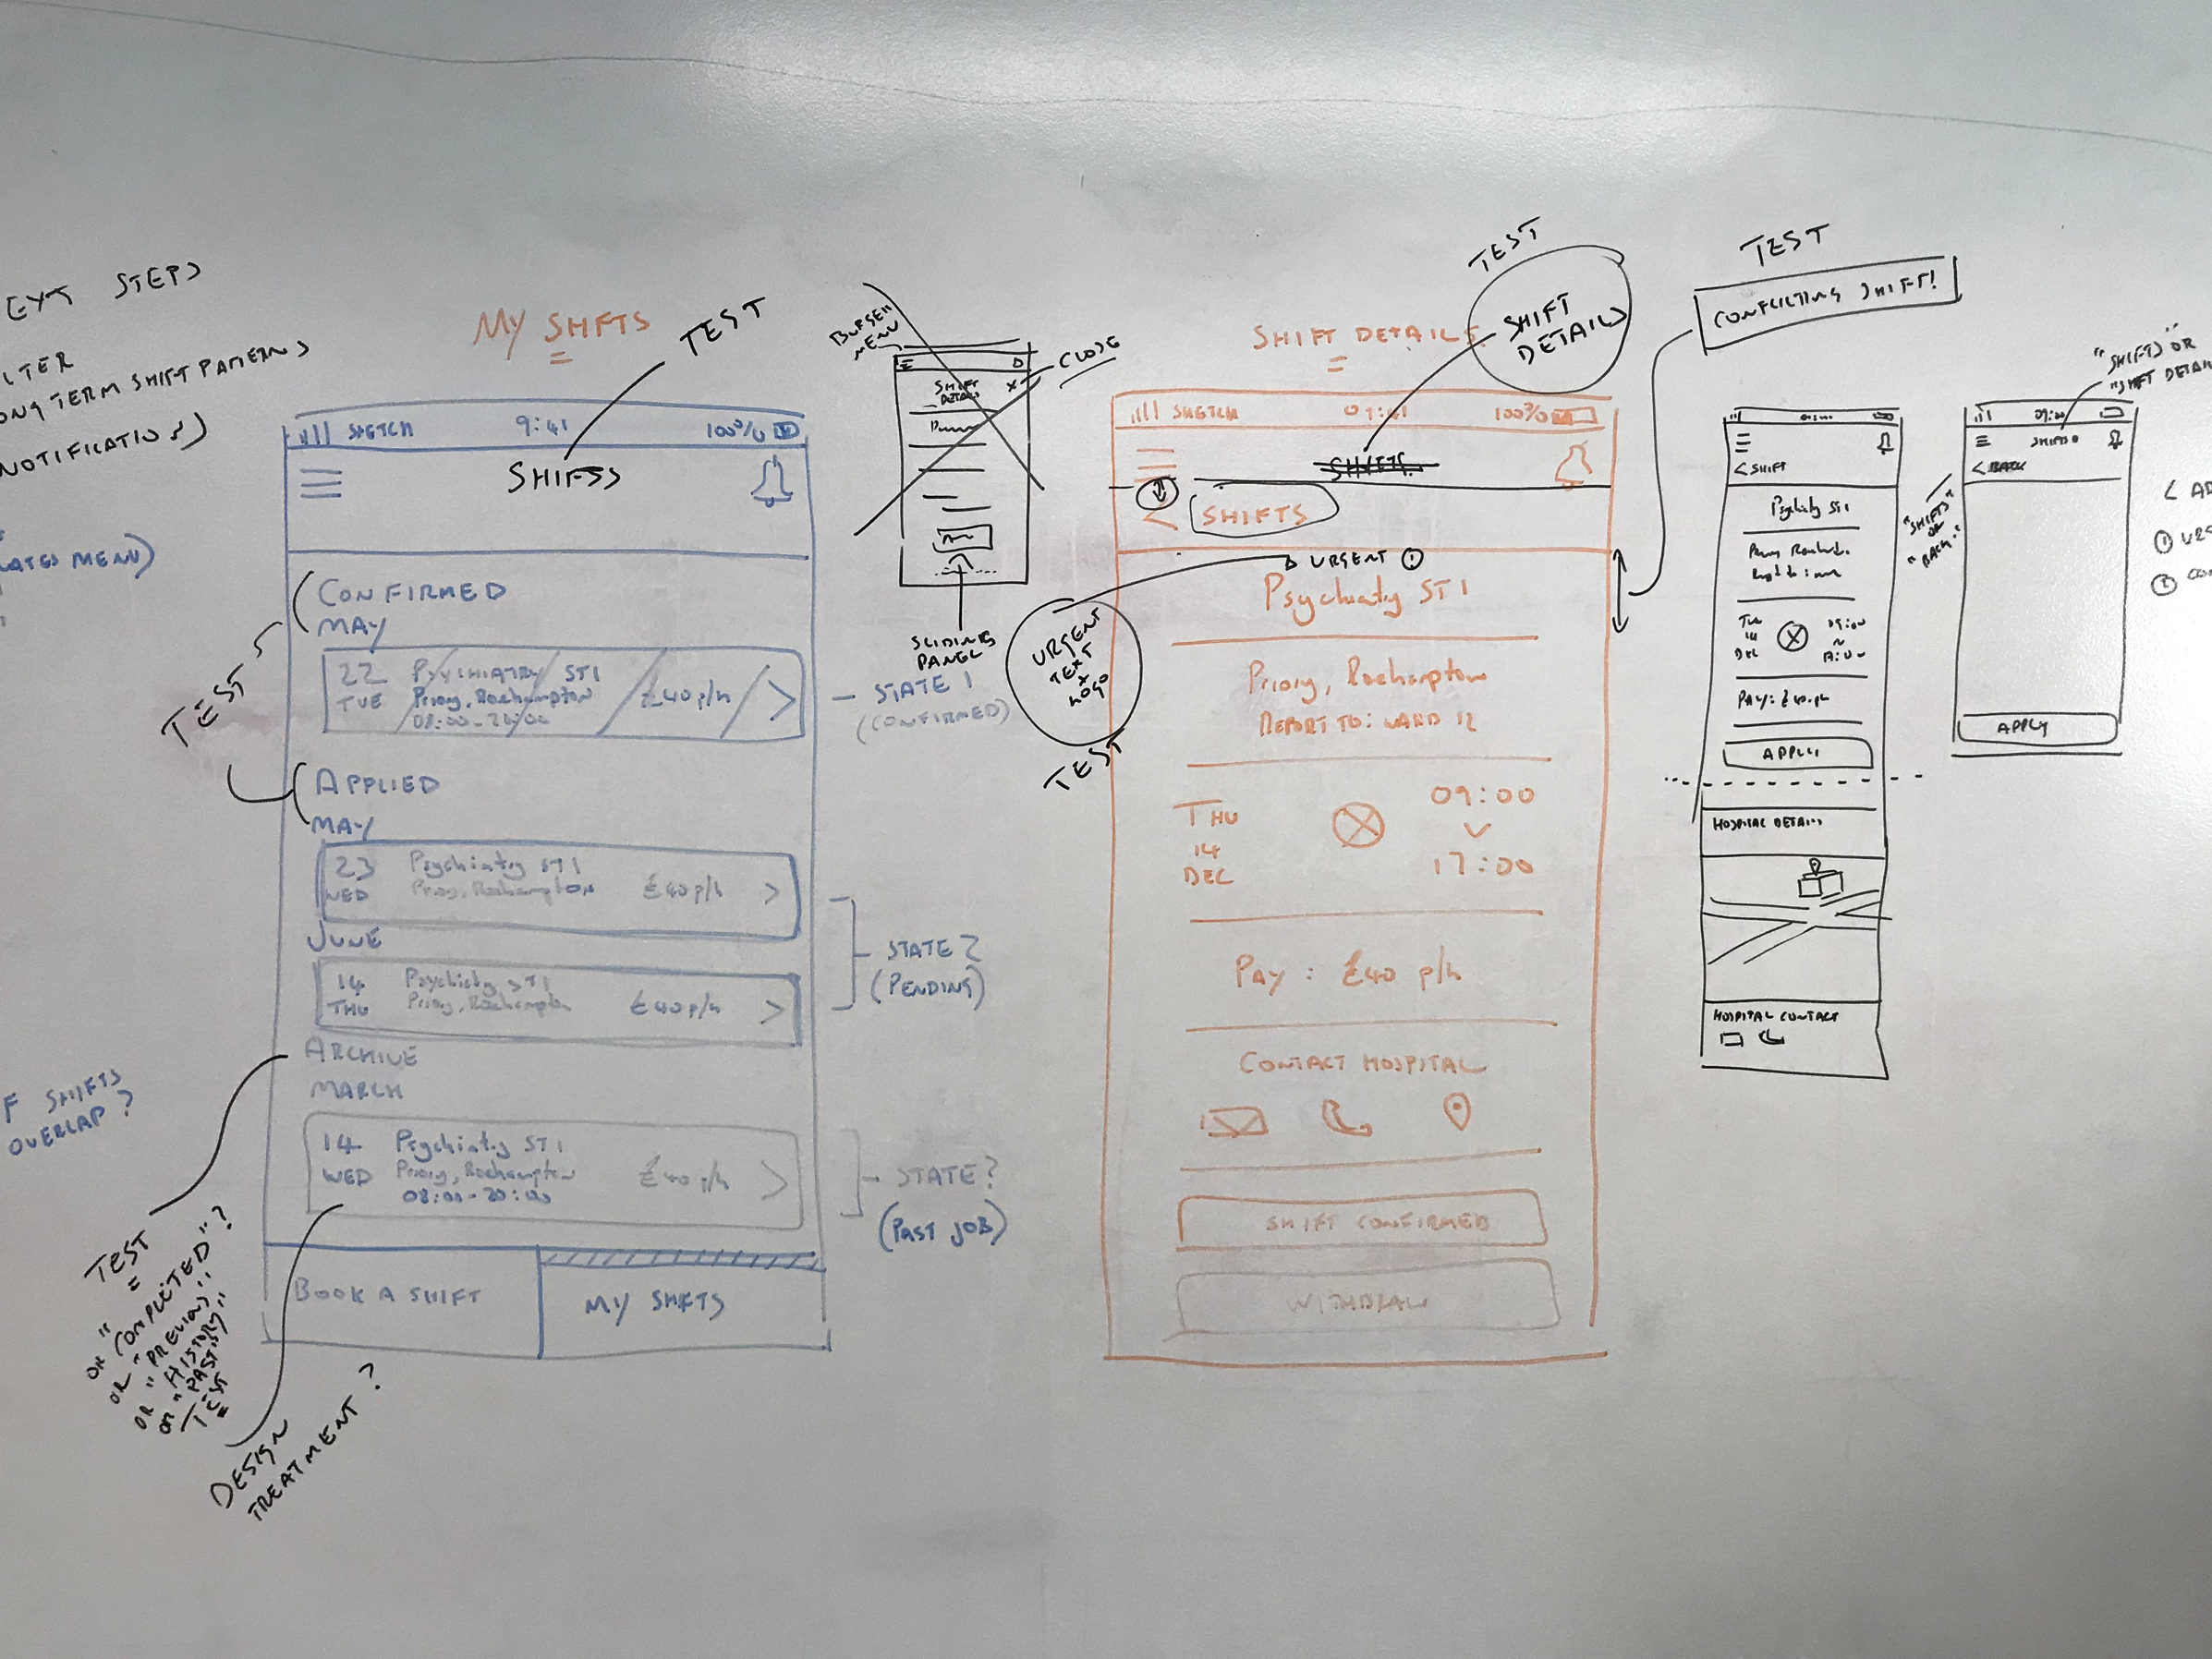 EXT STEPS
LTER
ONG TERM SHIFT PATTERNS
NOTIFICATIONS)
LATES MENU)
F SHIFTS
OVERLAP?
MY SHIFTS
TEST
SKETCH 9:41 100%
SHIFSS
CONFIRMED
MAY
22 PSYCHIATRY ST1
TUE Priory, Roehampton £40p/h >
08:00-20:00
STATE 1
(CONFIRMED)
TEST
APPLIED
MAY
23 Psychiatry ST1
WED Priory, Roehampton £40p/h >
JUNE
14 Psychiatry ST1
THU Priory, Roehampton £40p/h >
STATE 2
(PENDING)
ARCHIVE
MARCH
14 Psychiatry ST1
WED Priory, Roehampton £40p/h >
08:00-20:00
STATE?
(PAST JOB)
BOOK A SHIFT
MY SHIFTS
TEST
OR "COMPLETED"?
OR "PREVIOUS"
OR "HISTORY"
OR "PAST"
TEST
DESIGN
TREATMENT?
BURGER
MENU
CLOSE
SHIFT
DETAILS
X
SLIDING
PANEL
SHIFT DETAILS
TEST
SHIFT
DETAILS
SKETCH 100%
SHIFTS
< SHIFTS
URGENT
URGENT
TEXT
+
LOGO
TEST
Psychiatry ST1
Priory, Roehampton
REPORT TO: WARD 12
THU
14
DEC
09:00
17:00
PAY: £40 p/h
CONTACT HOSPITAL
SHIFT CONFIRMED
WITHDRAW
TEST
CONFLICTING SHIFT!
< SHIFT
Psychiatry ST1
TUE
14
DEC
09:00
PAY: £40 ph
APPLY
HOSPITAL DETAILS
HOSPITAL CONTACT
"SHIFTS" OR
"SHIFT DETAIL
09:00
SHIFTS
< BACK
"SHIFTS"
OR
"BACK"
APPLY
< AD
1 URG
2 CON